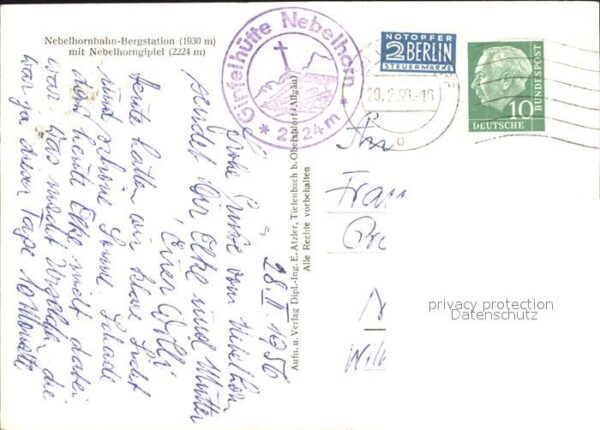 Nebelhornbahn-Bergstation (1930 m)
mit Nebelhorngipfel (2224 m)
Gipfelhütte Nebelhorn
* 2224 m *
NOTOPFER
2 BERLIN
STEUERMARKE
29.2.56-16
10
DEUTSCHE
BUNDESPOST
Aufn. u. Verlag Dipl.-Ing. E. Atzler, Tiefenbach b. Oberstdorf (Allgäu)
Alle Rechte vorbehalten
28. II. 1956
Grüße vom Nebelhorn
sendet Dir Elke und Mutter
Euer Willi
heute hatten wir klare Sicht
und schöne Sonne. Schade
dass heute Elke nicht dabei
war. Was macht die
war ja dieser Tage 10 Monate
An
Frau
privacy protection
Datenschutz